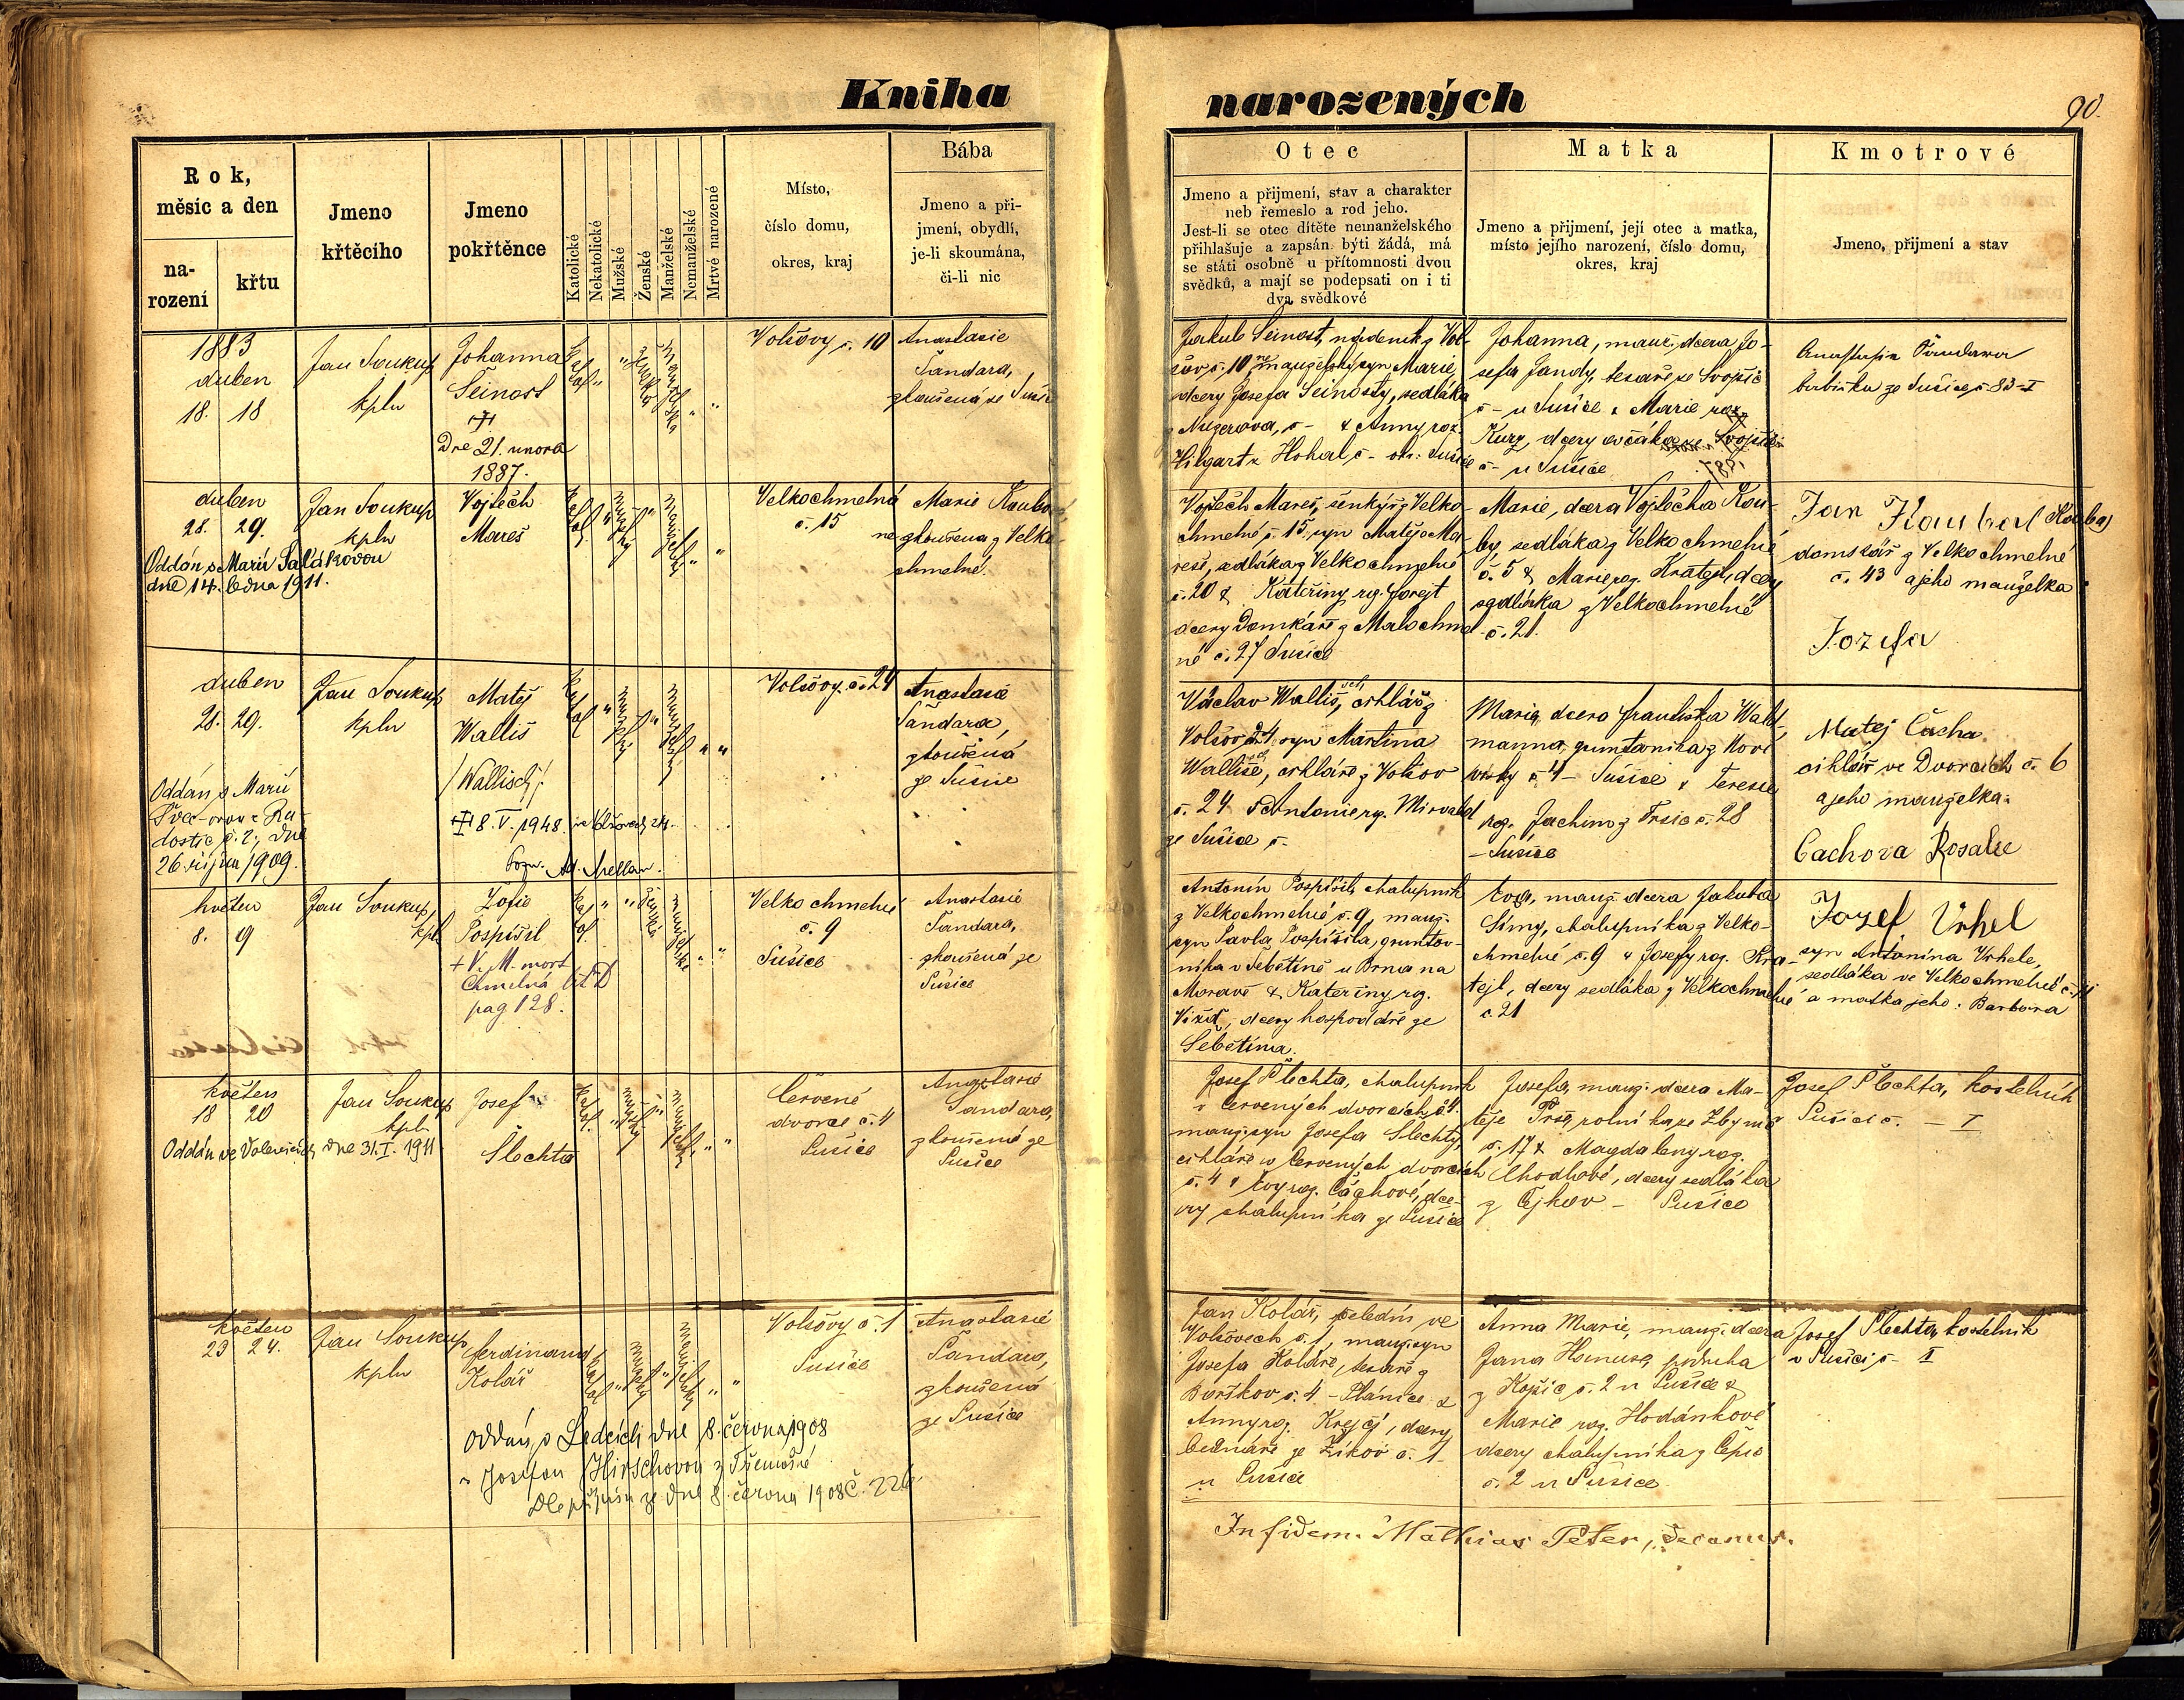 Kniha narozených
90.
Rok,
měsíc a den
na-
rození
křtu
Jmeno
křtěcího
Jmeno
pokřtěnce
Katolické
Nekatolické
Mužské
Ženské
Manželské
Nemanželské
Mrtvé narozené
Místo,
číslo domu,
okres, kraj
Bába
Jmeno a při-
jmení, obydlí,
je-li skoumána,
či-li nic
Otec
Jmeno a přijmení, stav a charakter
neb řemeslo a rod jeho.
Jest-li se otec dítěte nemanželského
přihlašuje a zapsán býti žádá, má
se státi osobně u přítomnosti dvou
svědků, a mají se podepsati on i ti
dva svědkové
Matka
Jmeno a přijmení, její otec a matka,
místo jejího narození, číslo domu,
okres, kraj
Kmotrové
Jmeno, přijmení a stav
1883
duben
18. 18
Jan Soukup
kpln
Johanna
Šeinost
Dne 21. unora
1887.
Volšovy č. 10
Anastasie
Šandara,
zkoušená ze Sušice
Jakub Šeinost, nádeník z Vol-
šov č. 10 manželský syn Marie,
dcery Josefa Šeinosty, sedláka
č - & Anny roz.
Hilgart z Hohal č - okr. Sušice
Johanna, manž. dcera Jo-
sefa Jandy, tesaře ze Svojšic
č - u Sušice & Marie roz.
Kurz, dcery ovčáka ze Svojšic
č - u Sušice
Anastasie Šandara
babička ze Sušice č 83-I
duben
28. 29.
Oddán s Marií Šalákovou
dne 14. ledna 1911.
Jan Soukup
kpln
Vojtěch
Mareš
Velkochmelná
č. 15
Marie Koubová,
nezkoušena z Velko
chmelné.
Vojtěch Mareš, šenkýř z Velko-
chmelné č. 15, syn Matěje Ma-
reše, sedláka z Velkochmelné
č. 20 & Kateřiny roz. Forejt
dcery Domkáře z Malochmel-
né č. 27 Sušice
Marie, dcera Vojtěcha Kou-
by, sedláka z Velkochmelné
č. 5 & Marie roz. Kratejl, dcery
sedláka z Velkochmelné
č. 21.
Jan Kouba
domskář z Velkochmelné
č. 43 a jeho manželka
Jozefa
duben
28. 29.
Oddán s Marií
dne
26. října 1909.
Jan Soukup
kpln
Matěj
Wallis
/Wallisch/
8. V. 1948 ve Volšovech 24.
Volšovy č. 24
Anastasie
Šandara,
zkoušená
ze Sušice
Václav Walliš, cihlář z
Volšov 24, syn Martina
Walliše, cihláře z Volšov
č. 24 & Antonie roz. Mirvald
ze Sušice č -
Marie, dcera Františka Wald-
manna, gruntovníka z Nové
vísky č 4 - Sušice & Terezie
roz. Jachim z Frsic č. 28
- Sušice
Matej Čacha
cihlář ve Dvorcích č. 6
a jeho manželka:
Cachova Rosalie
květen
8. 9
Jan Soukup,
kpl
Žofie
Pospíšil
+ V. M. mort
Chmelná
pag 128.
Velkochmelné
č. 9
Sušice
Anastasie
Šandara,
zkoušená ze
Sušice
Antonín Pospíšil, chalupník
z Velkochmelné č. 9, manž.
syn Pavla Pospíšila, gruntov-
níka v Šebětíně u Brna na
Moravě & Kateřiny roz.
dcery hospodáře ze
Šebětína.
Eva, manž. dcera Jakuba
Šímy, chalupníka z Velko-
chmelné č. 9 & Josefy roz. Kra-
tejl, dcery sedláka z Velkochmelné
č. 21
Jozef Vrhel
syn Antonína Vrhele,
sedláka ve Velkochmelné č.
a matka jeho: Barbora
květen
18 20
Oddán ve Volenicích dne 31. I. 1911
Jan Soukup
kpln
Josef
Šlechta
Červené
dvorce č. 4
Sušice
Anastasie
Šandara,
zkoušená ze
Sušice
Josef Šlechta, chalupník
v Červených dvorcích č 4.
manž. syn Josefa Šlechty,
cihláře v Červených dvorcích
č. 4 & Evy roz. Čáchové, dce-
ry chalupníka ze Sušice
Josefa, manž. dcera Ma-
těje Trše, rolníka ze Zbynic
č. 17 & Magdaleny roz.
Chodlové, dcery sedláka
z Čejkov - Sušice
Josef Šlechta, kostelník
Sušici č. - I
květen
23 24.
Jan Soukup
kpln
Ferdinand
Kolář
Oddán v Ledcích dne 8. června 1908
s Josefou Hirschovou z Třemošné
Dle přípisu ze dne 8. června 1908 č. 226
Volšovy č. 1
Sušice
Anastasie
Šandara,
zkoušená
ze Sušice
Jan Kolář, čeledín ve
Volšovech č. 1, manž. syn
Josefa Koláře, tesaře z
Borškov č. 4 - Plánice &
Anny roz. Krejčí, dcery
bednáře ze Žikov č. 1
u Sušice
Anna Marie, manž. dcera
Jana Hanusa, podruha
z Kojšic č. 2 u Sušice &
Marie roz. Hodánkové
dcery chalupníka z Čepic
č. 2 u Sušice
Josef Šlechta, kostelník
v Sušici č - I
In fidem. Mathias Peter, decanus.